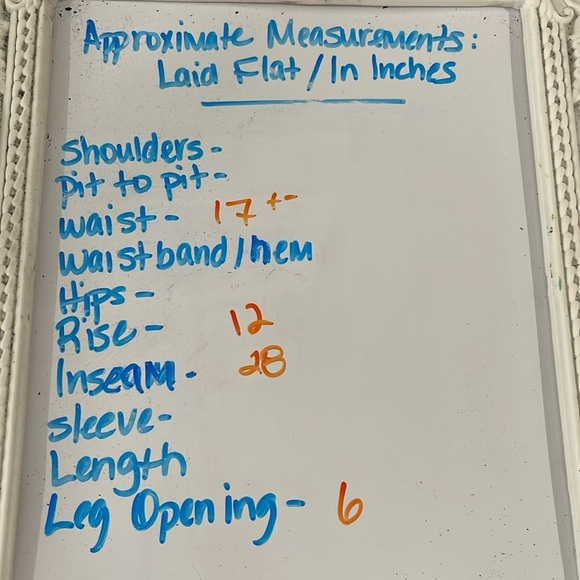 Approximate Measurements:
Laid Flat / In Inches
Shoulders -
pit to pit -
waist - 17 +-
waistband / hem
Hips -
Rise - 12
Inseam - 28
sleeve -
Length
Leg Opening - 6